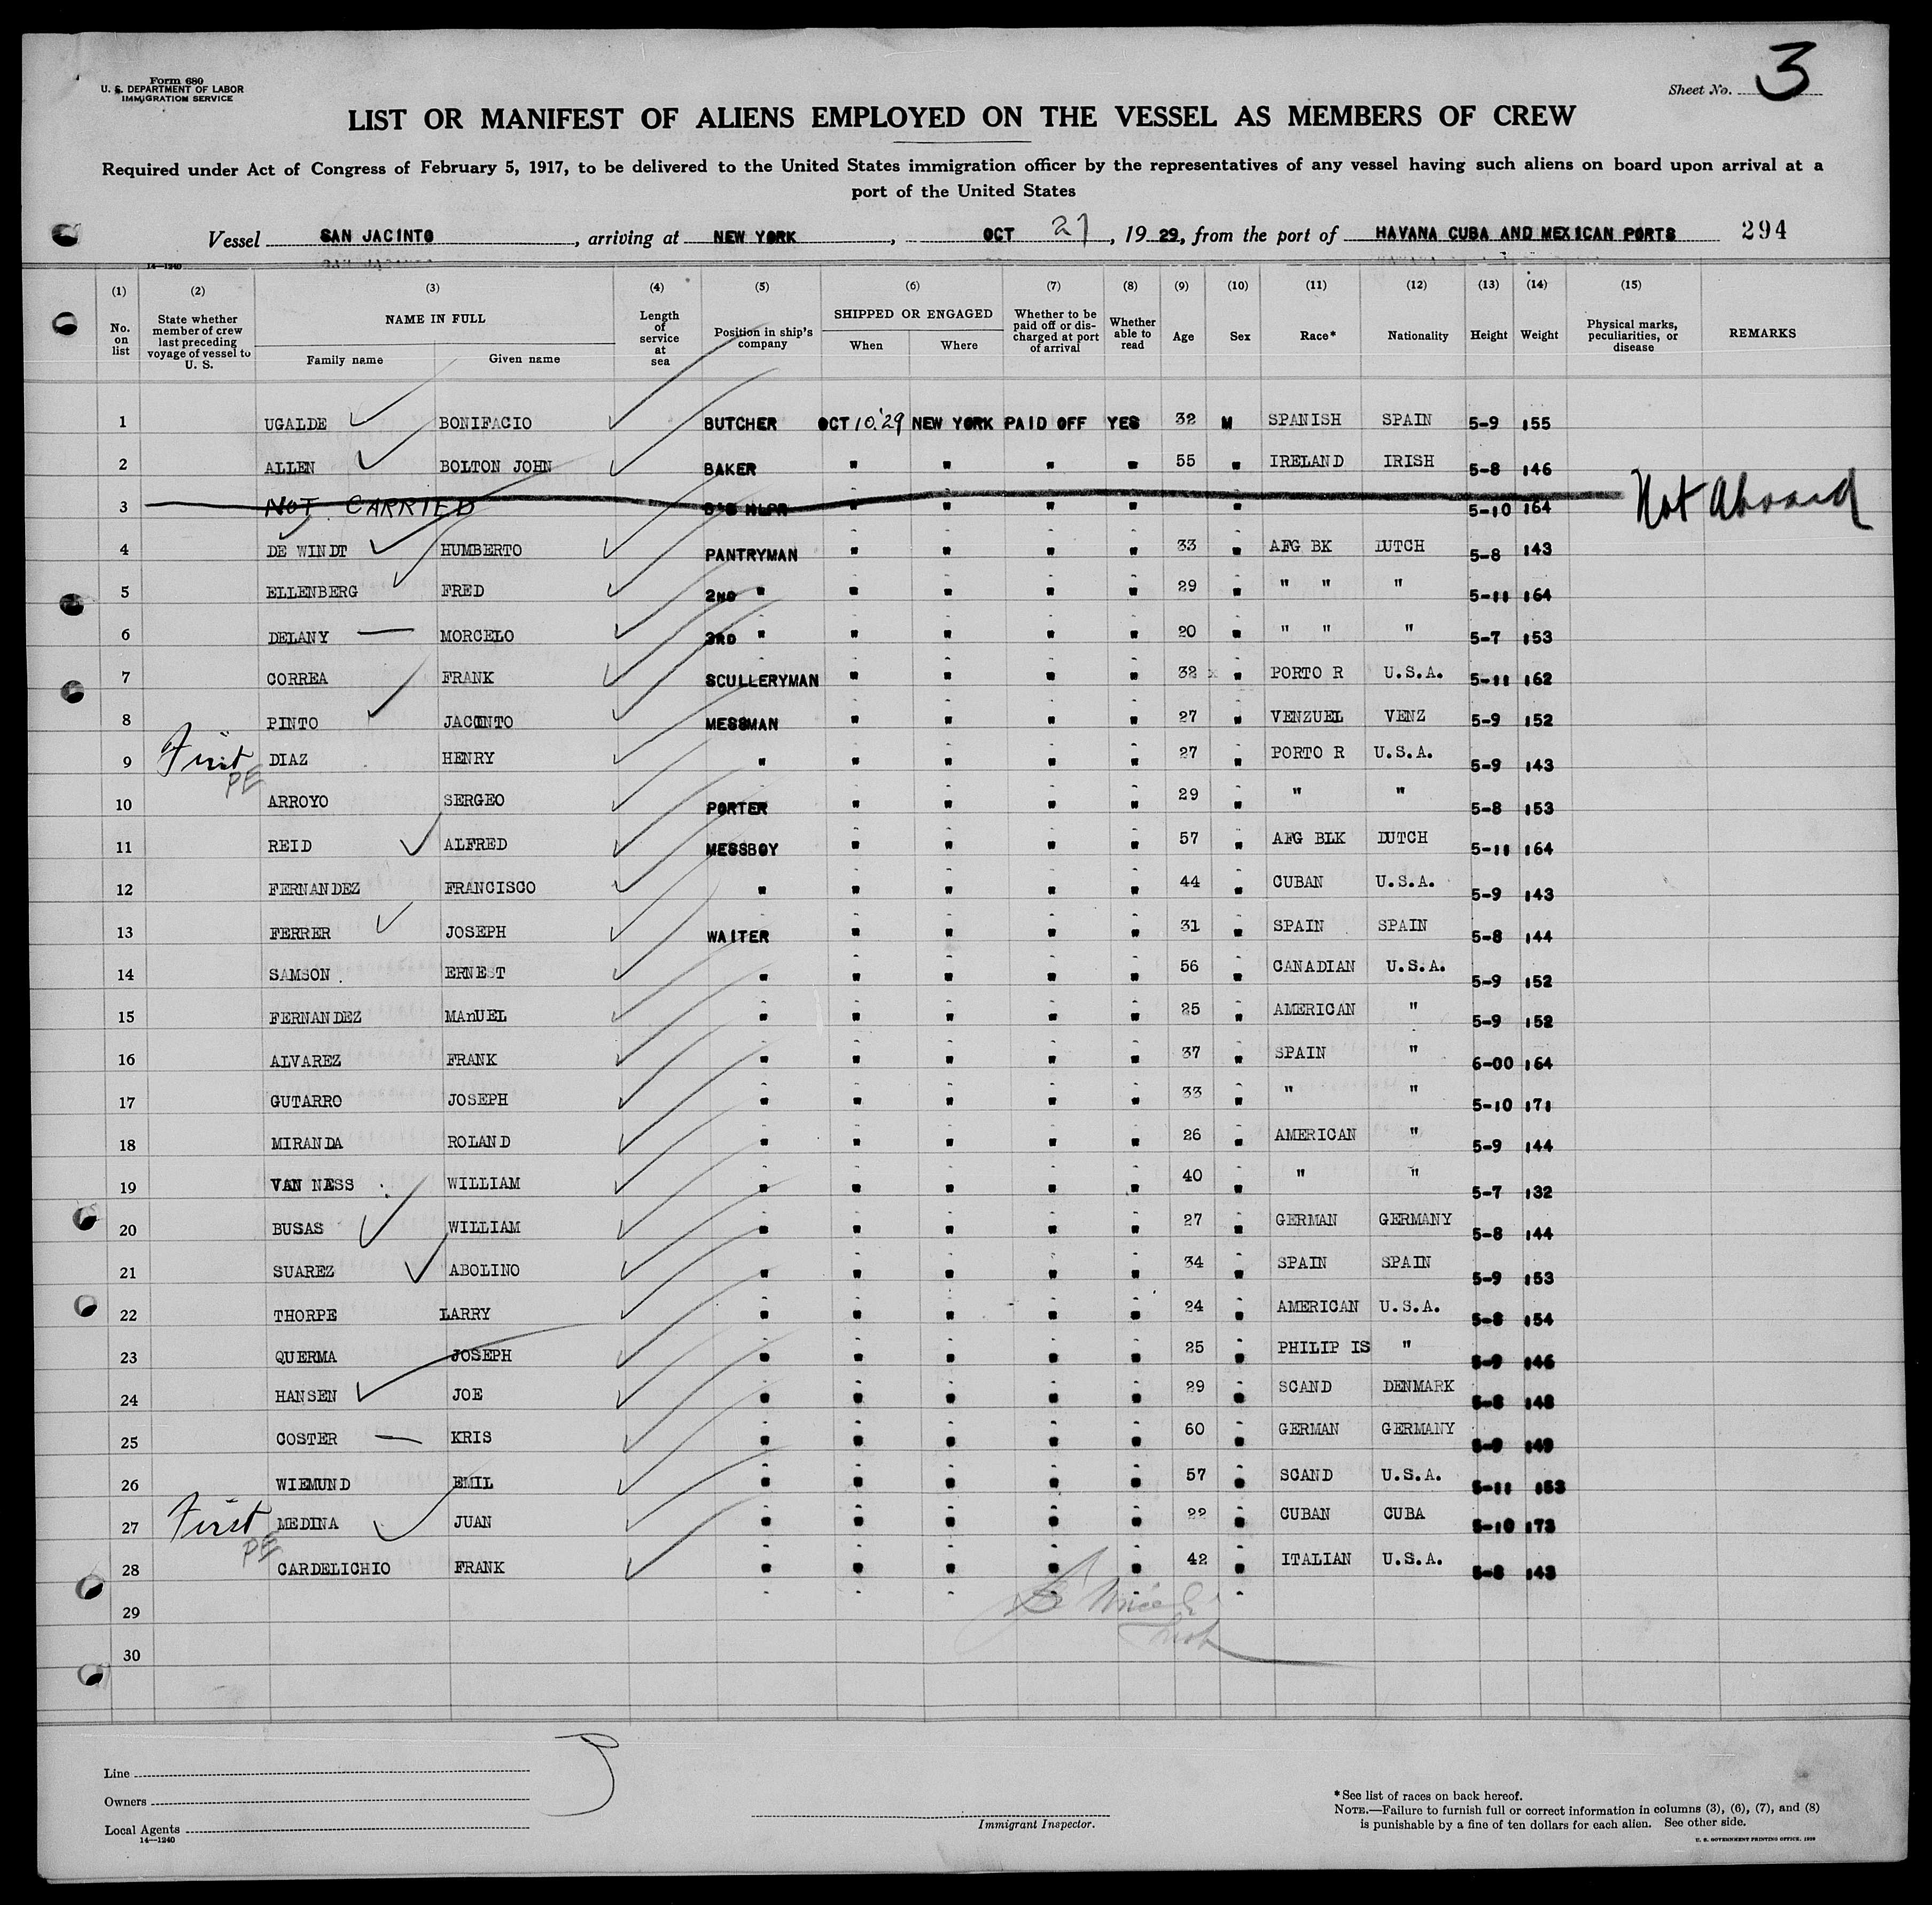 Form 680
U. S. DEPARTMENT OF LABOR
IMMIGRATION SERVICE
Sheet No. 3
LIST OR MANIFEST OF ALIENS EMPLOYED ON THE VESSEL AS MEMBERS OF CREW
Required under Act of Congress of February 5, 1917, to be delivered to the United States immigration officer by the representatives of any vessel having such aliens on board upon arrival at a
port of the United States
Vessel SAN JACINTO, arriving at NEW YORK, OCT 27, 1929, from the port of HAVANA CUBA AND MEXICAN PORTS 294
14—1240
(1) (2) (3) (4) (5) (6) (7) (8) (9) (10) (11) (12) (13) (14) (15)
No. on list State whether member of crew last preceding voyage of vessel to U. S. NAME IN FULL Family name Given name Length of service at sea Position in ship's company SHIPPED OR ENGAGED When Where Whether to be paid off or discharged at port of arrival Whether able to read Age Sex Race* Nationality Height Weight Physical marks, peculiarities, or disease REMARKS
1 UGALDE BONIFACIO BUTCHER OCT 10.'29 NEW YORK PAID OFF YES 32 M SPANISH SPAIN 5-9 155
2 ALLEN BOLTON JOHN BAKER " " " " 55 " IRELAND IRISH 5-8 146
3 NOT CARRIED B'S HLPR " " " " " 5-10 164 Not Aboard
4 DE WINDT HUMBERTO PANTRYMAN " " " " 33 " AFG BK DUTCH 5-8 143
5 ELLENBERG FRED 2ND " " " " " 29 " " " " 5-11 164
6 DELANY — MORCELO 3RD " " " " " 20 " " " " 5-7 153
7 CORREA FRANK SCULLERYMAN " " " " 32 x " PORTO R U.S.A. 5-11 162
8 PINTO JACINTO MESSMAN " " " " 27 " VENZUEL VENZ 5-9 152
9 First PE DIAZ HENRY " " " " " 27 " PORTO R U.S.A. 5-9 143
10 ARROYO SERGEO PORTER " " " " 29 " " " 5-8 153
11 REID ALFRED MESSBOY " " " " 57 " AFG BLK DUTCH 5-11 164
12 FERNANDEZ FRANCISCO " " " " " 44 " CUBAN U.S.A. 5-9 143
13 FERRER JOSEPH WAITER " " " " 31 " SPAIN SPAIN 5-8 144
14 SAMSON ERNEST " " " " " 56 " CANADIAN U.S.A. 5-9 152
15 FERNANDEZ MAnUEL " " " " " 25 " AMERICAN " 5-9 152
16 ALVAREZ FRANK " " " " " 37 " SPAIN " 6-00 164
17 GUTARRO JOSEPH " " " " " 33 " " " 5-10 171
18 MIRANDA ROLAND " " " " " 26 " AMERICAN " 5-9 144
19 VAN NESS WILLIAM " " " " " 40 " " " 5-7 132
20 BUSAS WILLIAM " " " " " 27 " GERMAN GERMANY 5-8 144
21 SUAREZ ABOLINO " " " " " 34 " SPAIN SPAIN 5-9 153
22 THORPE LARRY " " " " " 24 " AMERICAN U.S.A. 5-8 154
23 QUERMA JOSEPH " " " " " 25 " PHILIP IS " 5-9 146
24 HANSEN JOE " " " " " 29 " SCAND DENMARK 5-8 148
25 COSTER — KRIS " " " " " 60 " GERMAN GERMANY 5-9 149
26 WIEMUND EMIL " " " " " 57 " SCAND U.S.A. 5-11 153
27 First PE MEDINA JUAN " " " " " 22 " CUBAN CUBA 5-10 173
28 CARDELICHIO FRANK " " " " " 42 " ITALIAN U.S.A. 5-8 143
29
30
Line
Owners
Local Agents
14—1240
Immigrant Inspector.
*See list of races on back hereof.
NOTE.—Failure to furnish full or correct information in columns (3), (6), (7), and (8)
is punishable by a fine of ten dollars for each alien. See other side.
U. S. GOVERNMENT PRINTING OFFICE, 1928